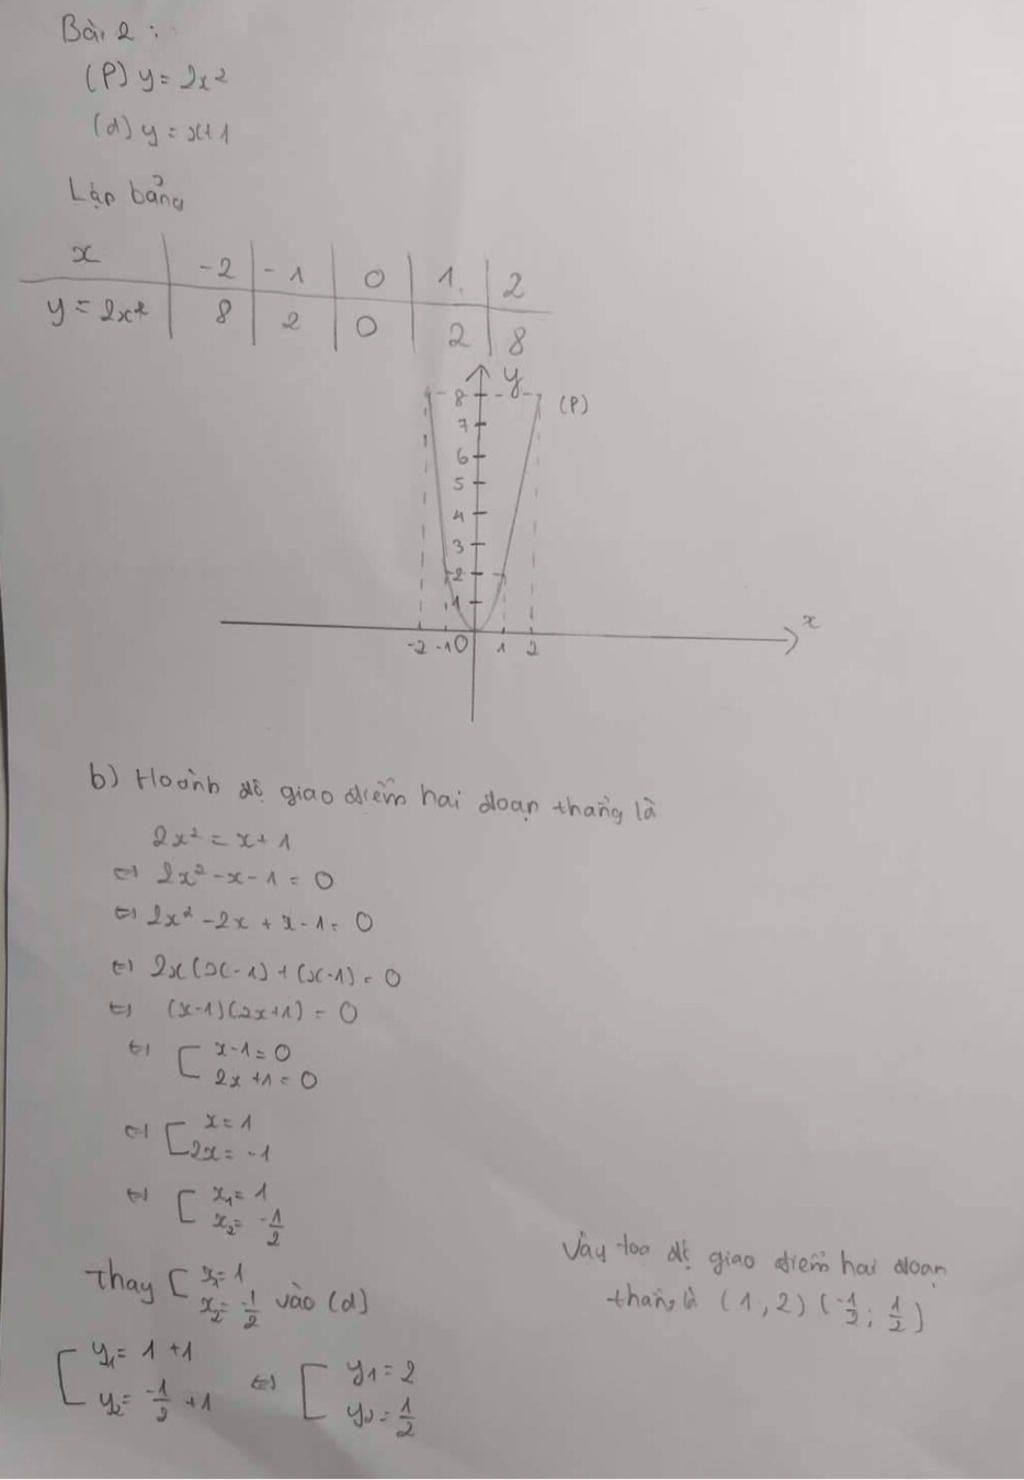 Bài 2 :
(P) y = 2x²
(d) y = x+1
Lập bảng
x | -2 | -1 | 0 | 1 | 2
y = 2x² | 8 | 2 | 0 | 2 | 8
y
8
(P)
7
6
5
4
3
2
1
x
-2 -1 0 1 2
b) Hoành độ giao điểm hai đoạn thẳng là
2x² = x + 1
⇔ 2x² - x - 1 = 0
⇔ 2x² - 2x + x - 1 = 0
⇔ 2x(x-1) + (x-1) = 0
⇔ (x-1)(2x+1) = 0
⇔ [ x-1 = 0
2x+1 = 0
⇔ [ x = 1
2x = -1
⇔ [ x₁ = 1
x₂ = -1/2
Thay [ x₁ = 1
x₂ = -1/2 vào (d)
[ y₁ = 1 + 1
y₂ = -1/2 + 1
⇔ [ y₁ = 2
y₂ = 1/2
Vậy toạ độ giao điểm hai đoạn
thẳng là (1, 2) (-1/2 ; 1/2)